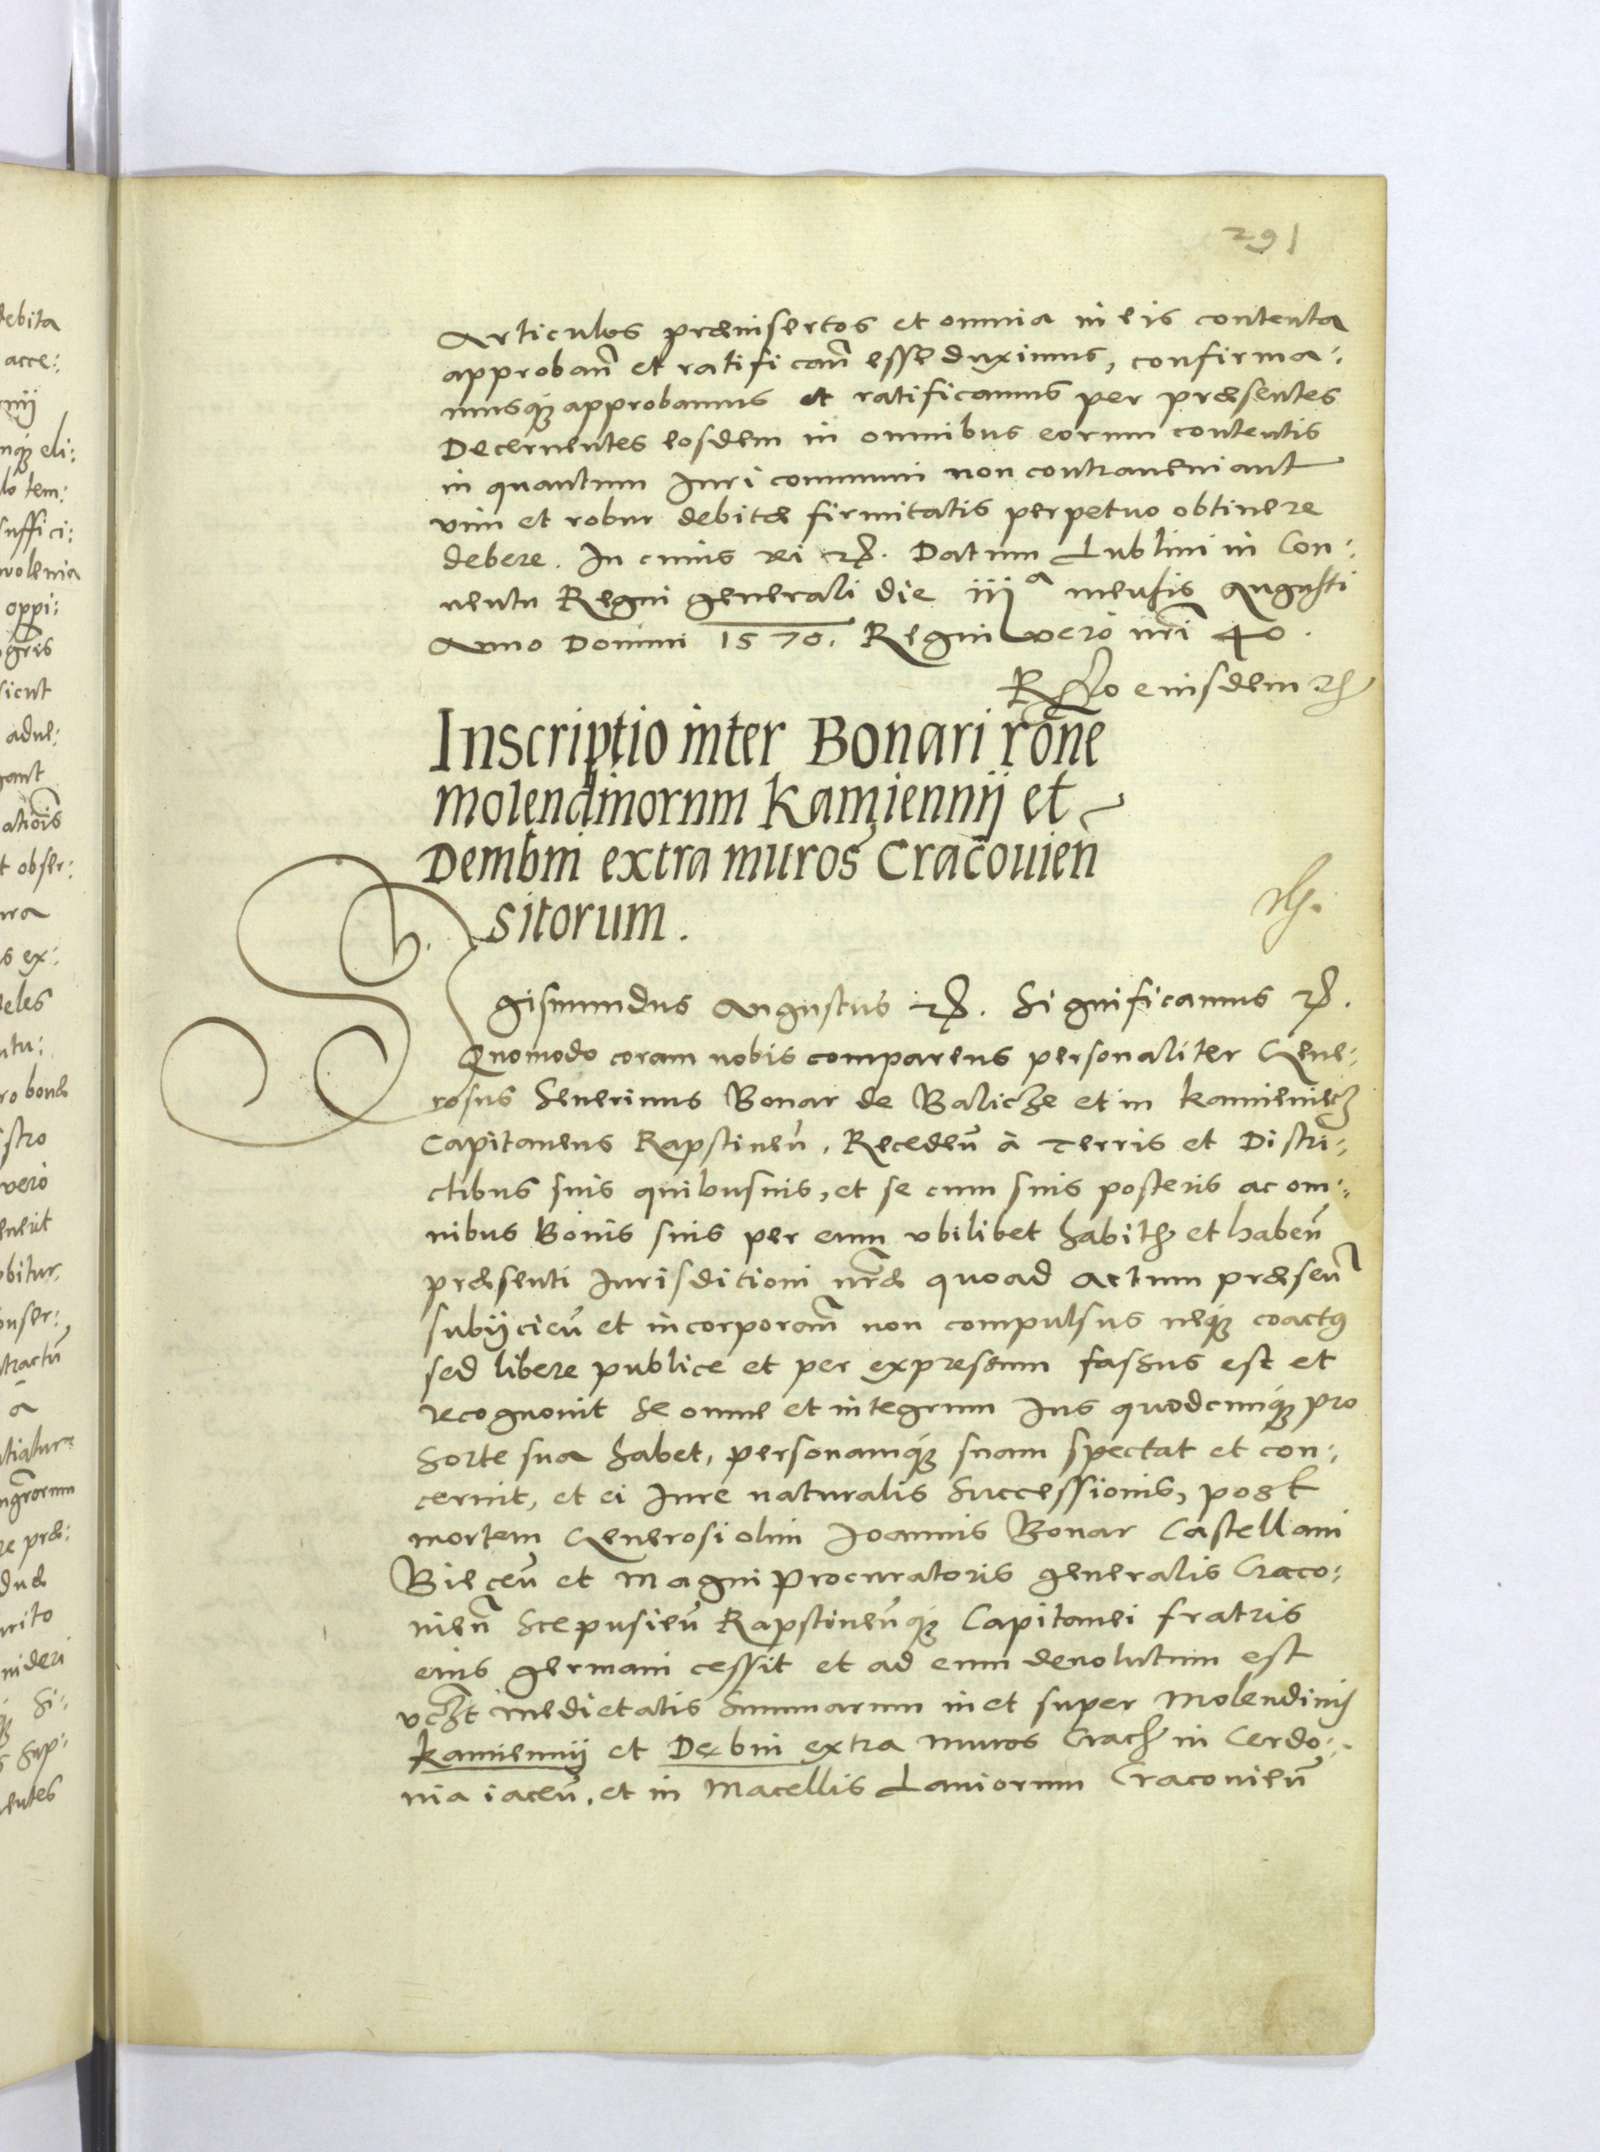 291
Articulos præinsertos et omnia in eis contenta
approbañ et ratificañ esse duximus, confirma:
musq̃ approbamus et ratificamus per præsentes
Decernentes eosdem in omnibus eorum contentis
in quantum Iuri communi non contraveniant
vim et robur debitæ firmitatis perpetuo obtinere
debere. In cuius rei &c. Datum Lublini in Con:
ventu Regni generali die iijᵃ mensis Augusti
Anno Domini 1570. Regni vero nr̃i 40.
eiusdem
Inscriptio inter Bonari rõne
molendinorum Kamiennij et
Dembni extra muros Cracouieñ
sitorum.
Sigismundus Augustus &c. Significamus &c.
Quomodo coram nobis comparens personaliter Gene:
rosus Severinus Bonar de Balicze et in Kamieniecz
Capitaneus Rapstineñ. Recedeñ à Terris et Distri:
ctibus suis quibusuis, et se cum suis posteris ac om:
nibus Bonis suis per eum ubilibet habit et habeñ
præsenti Iurisditioni nr̃æ quoad actum præseñ
subijcieñ et incorporañ non compulsus neq̃ coactus
sed libere publice et per expressum fassus est et
recognovit se omne et integrum Ius quodcunq̃ pro
sorte sua habet, personamq̃ suam spectat et con:
cernit, et ei Iure naturalis successionis, post
mortem Generosi olim Ioannis Bonar Castellani
Bieceñ et Magni procuratoris generalis Craco:
vieñ Scepusieñ Rapstineñq̃ Capitanei fratris
eius germani cessit et ad eum devolutum est
vc̃zt medietatis summarum in et super Molendinis
Kamiennij et Debni extra muros Crac in Cerdo:
nia iaceñ, et in Macellis Laniorum Cracovieñ